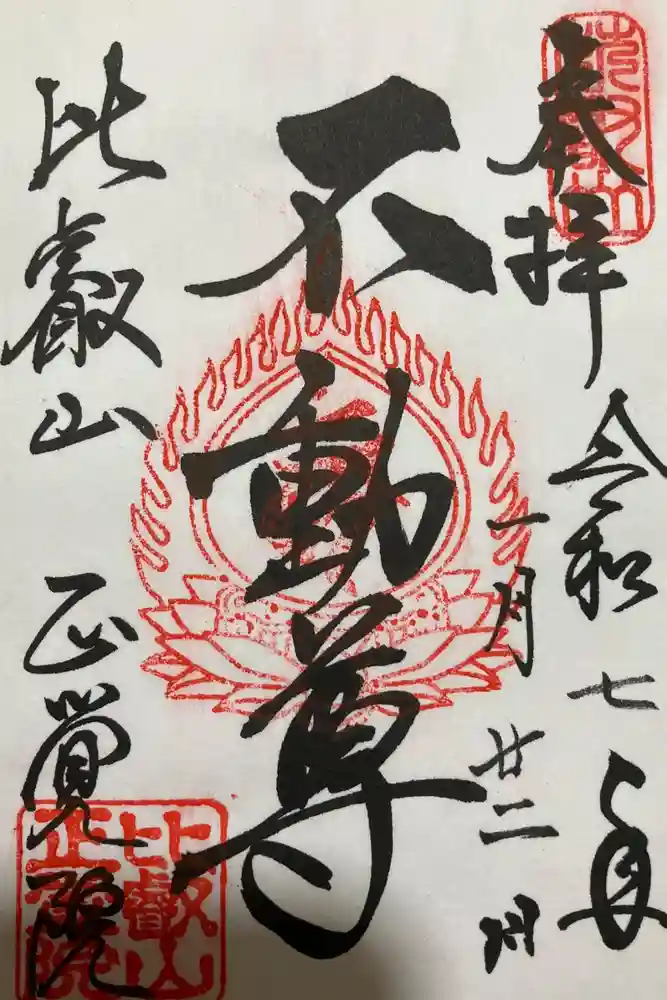 奉拝
令和七年
一月廿二日
不動尊
比叡山
正覺院
比叡山
正覺院